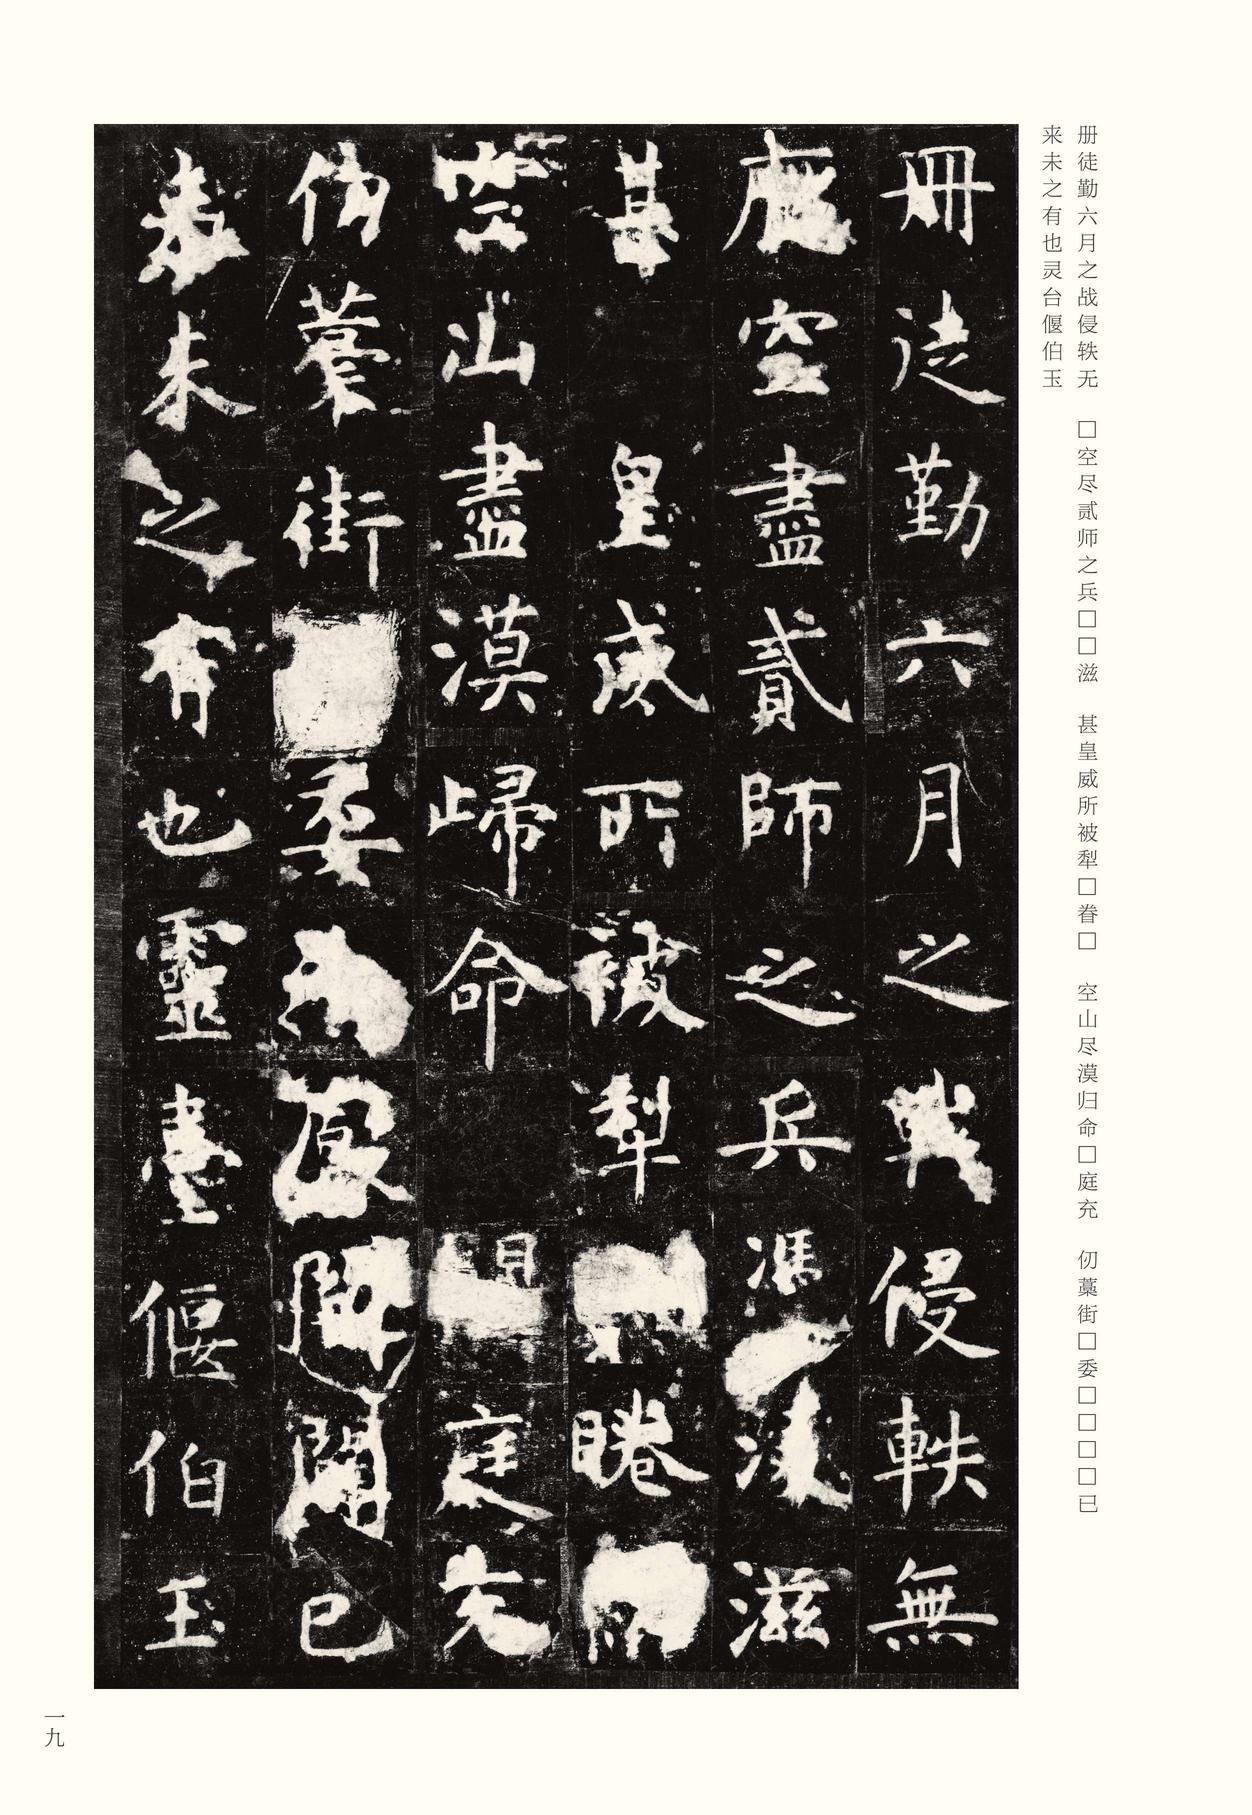 册徒勤六月之战侵轶无　□空尽贰师之兵□□滋　甚皇威所被犁□眷□　空山尽漠归命□庭充　仞藁街□委□□□□已
来未之有也灵台偃伯玉
冊徒勤六月之戰侵軼無
空盡貳師之兵馮滋
甚皇威所被犁睠
空山盡漠歸命庭充
藁街委已
未之有也靈臺偃伯玉
一九